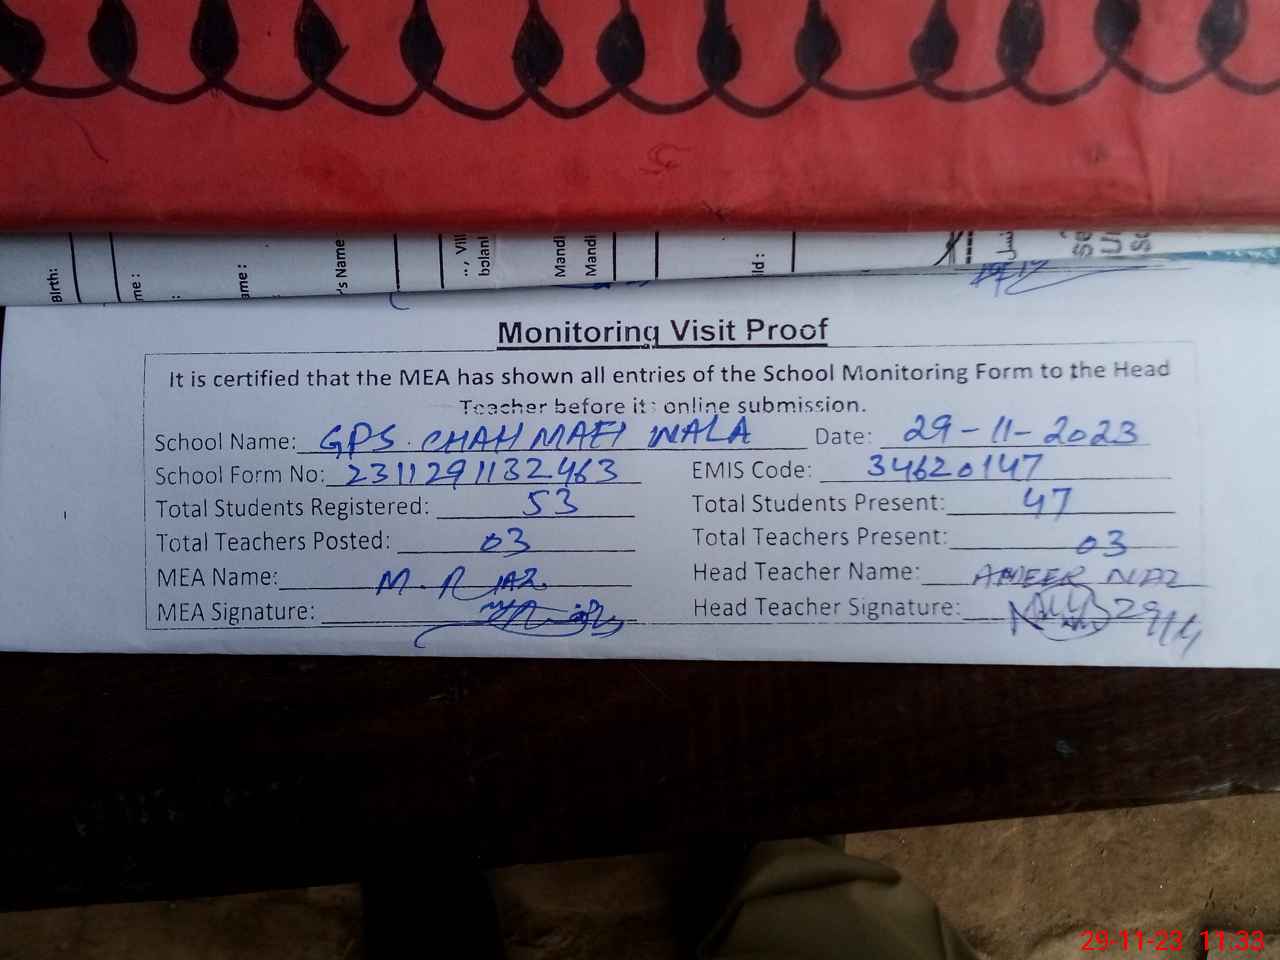 Birth:
me :
:
ame :
's Name
.., Vill
bolani
Mandi
Mandi
ld :
Monitoring Visit Proof
It is certified that the MEA has shown all entries of the School Monitoring Form to the Head
Teacher before its online submission.
School Name: GPS. CHAH MAFI WALA Date: 29-11-2023
School Form No: 2311291132463 EMIS Code: 34620147
Total Students Registered: 53 Total Students Present: 47
Total Teachers Posted: 03 Total Teachers Present: 03
MEA Name: M. RIAZ Head Teacher Name: AMEER NIAZ
MEA Signature: Head Teacher Signature: 29/11
29-11-23 11:33